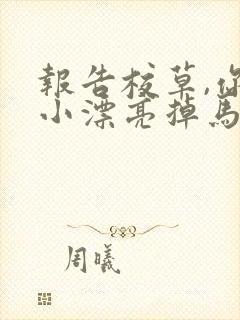 報告校草,你
小漂亮掉馬
周曦